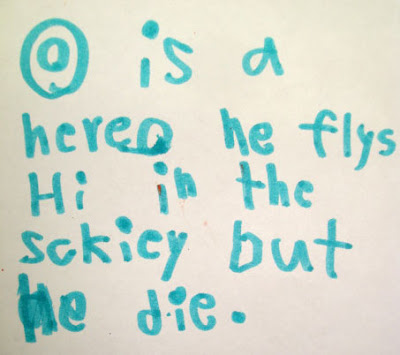 O is a
hereo he flys
Hi in the
sckiey but
he die.